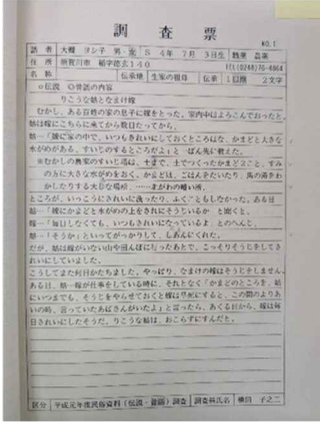 調査票
NO.1
話者 大槻 ヨシ子 男・女 S 4年 7月 3日生 職業 農業
住所 須賀川市 稲字 140 TEL(0248)76-6964
名称 伝承地 生家の祖母 伝承 1以前 2文字
○伝説 ◎昔話の内容
りこうな姑となまけ嫁
むかし、ある百姓の家の息子に嫁をとった。家内中はよろこんでおったと。
姑は嫁にこちらに来てから数日たってから、
姑―「嫁に家の中で、いつもきれいにしておくところはな、かまどと大きな
水がめがある、すいじのするところだよ」と ばん先に教えた。
※むかしの農家のすいじ場は、土まで、土でつくったかまど2こと、すみ
の方に大きな水がめをおく、かまどは、ごはんをたいたり、馬の湯をわ
かしたりする大事な場所、……まがわの暗い所。
ところが、いっこうにきれいに洗ったり、ふくこともしなかった。ある日
姑―「嫁にかまどと水がめの上をきれいにそうじいるか と聞くと、
嫁―「毎日しなくても、いつもきれいになっているよ とのへんじ、
姑―「そうか」といってがっかりして、しあんにくれた。
だが、姑は嫁がいない山や田んぼに行ったあとで、こっそりそうじをしてき
れいにしていました。
こうしてまた何日かたちました。やっぱり、なまけの嫁はそうじをしません。
ある日、姑―嫁が仕事をしている時に、それとなく「かまどのところを、姑
にいつまでも、そうじをやらせておくと嫁は早死にすると、この間のよりあ
いの時、言っていたあばさんがいたよ」と言ったら、あくる日から、嫁は毎
日きれいにしたそうだ。りこうな姑は、おこらずにすんだと。
区分 平成元年度民俗資料(伝説・昔話)調査 調査員氏名 横田